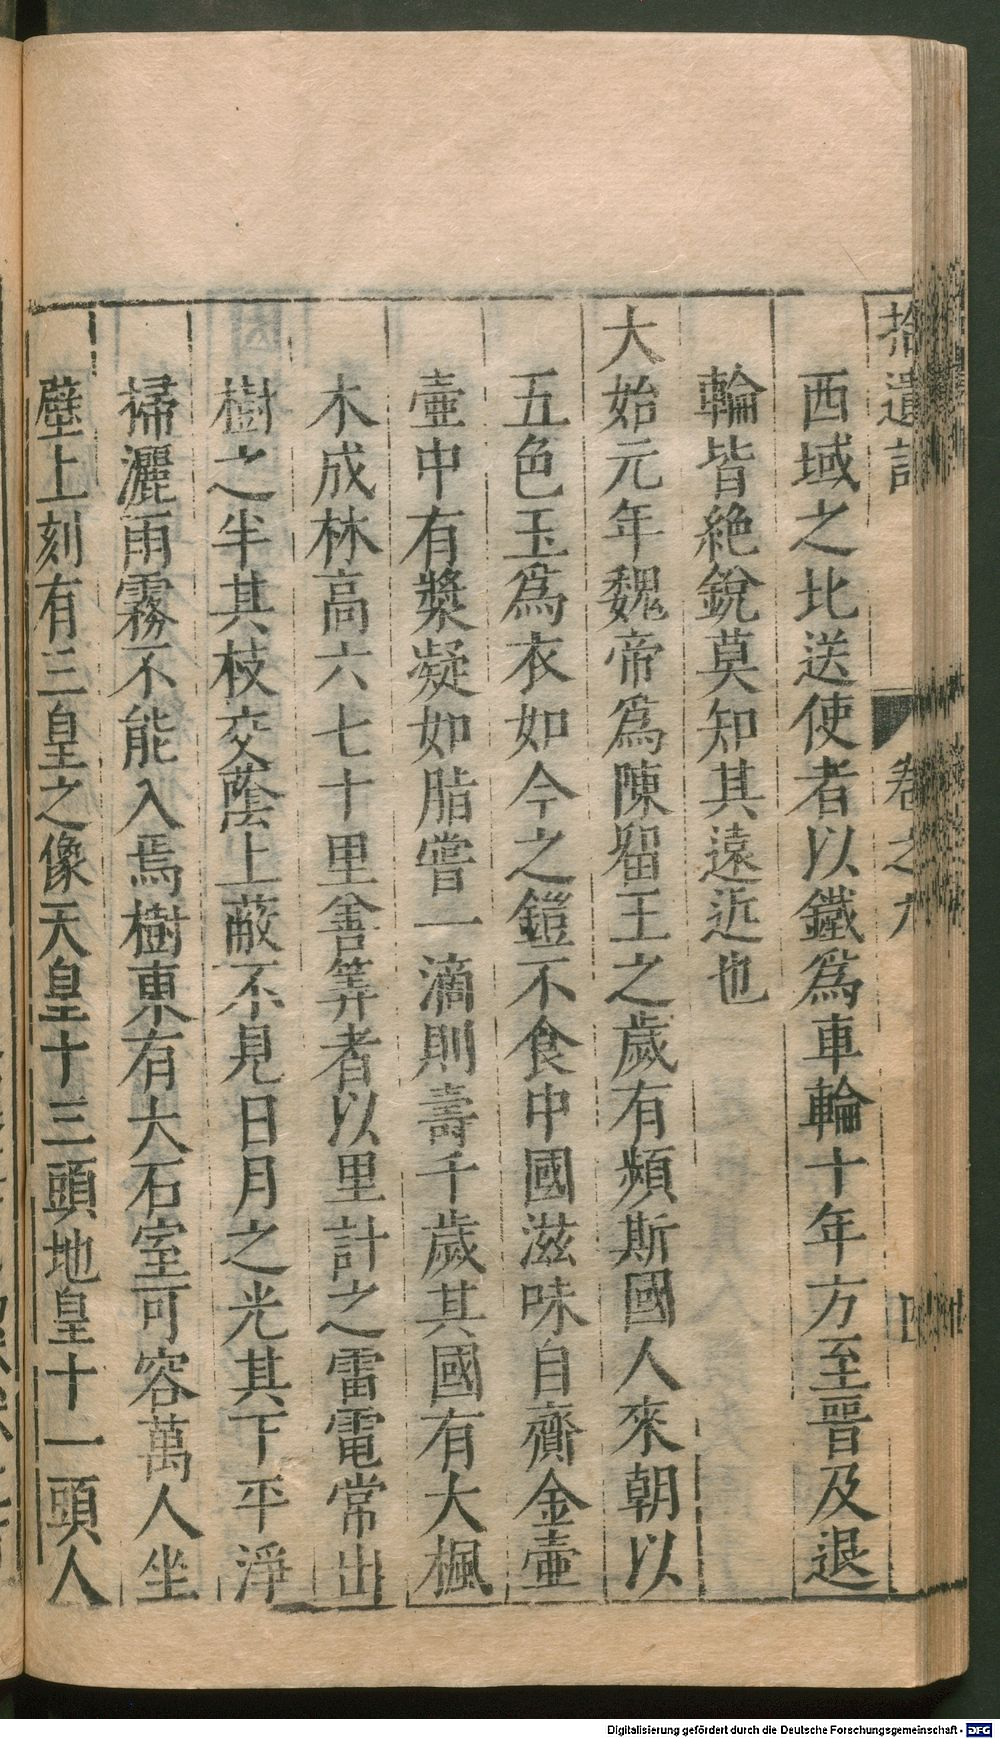 拾遺記 卷之九 四
西域之北送使者以鐵爲車輪十年方至晉及退
輪皆絶銳莫知其遠近也
大始元年魏帝爲陳留王之歲有頻斯國人來朝以
五色玉爲衣如今之鎧不食中國滋味自齎金壺
壺中有漿凝如脂嘗一滴則壽千歲其國有大楓
木成林高六七十里善筭者以里計之雷電常出
樹之半其枝交蔭上蔽不見日月之光其下平淨
掃灑雨霧不能入焉樹東有大石室可容萬人坐
壁上刻有三皇之像天皇十三頭地皇十一頭人
Digitalisierung gefördert durch die Deutsche Forschungsgemeinschaft - DFG